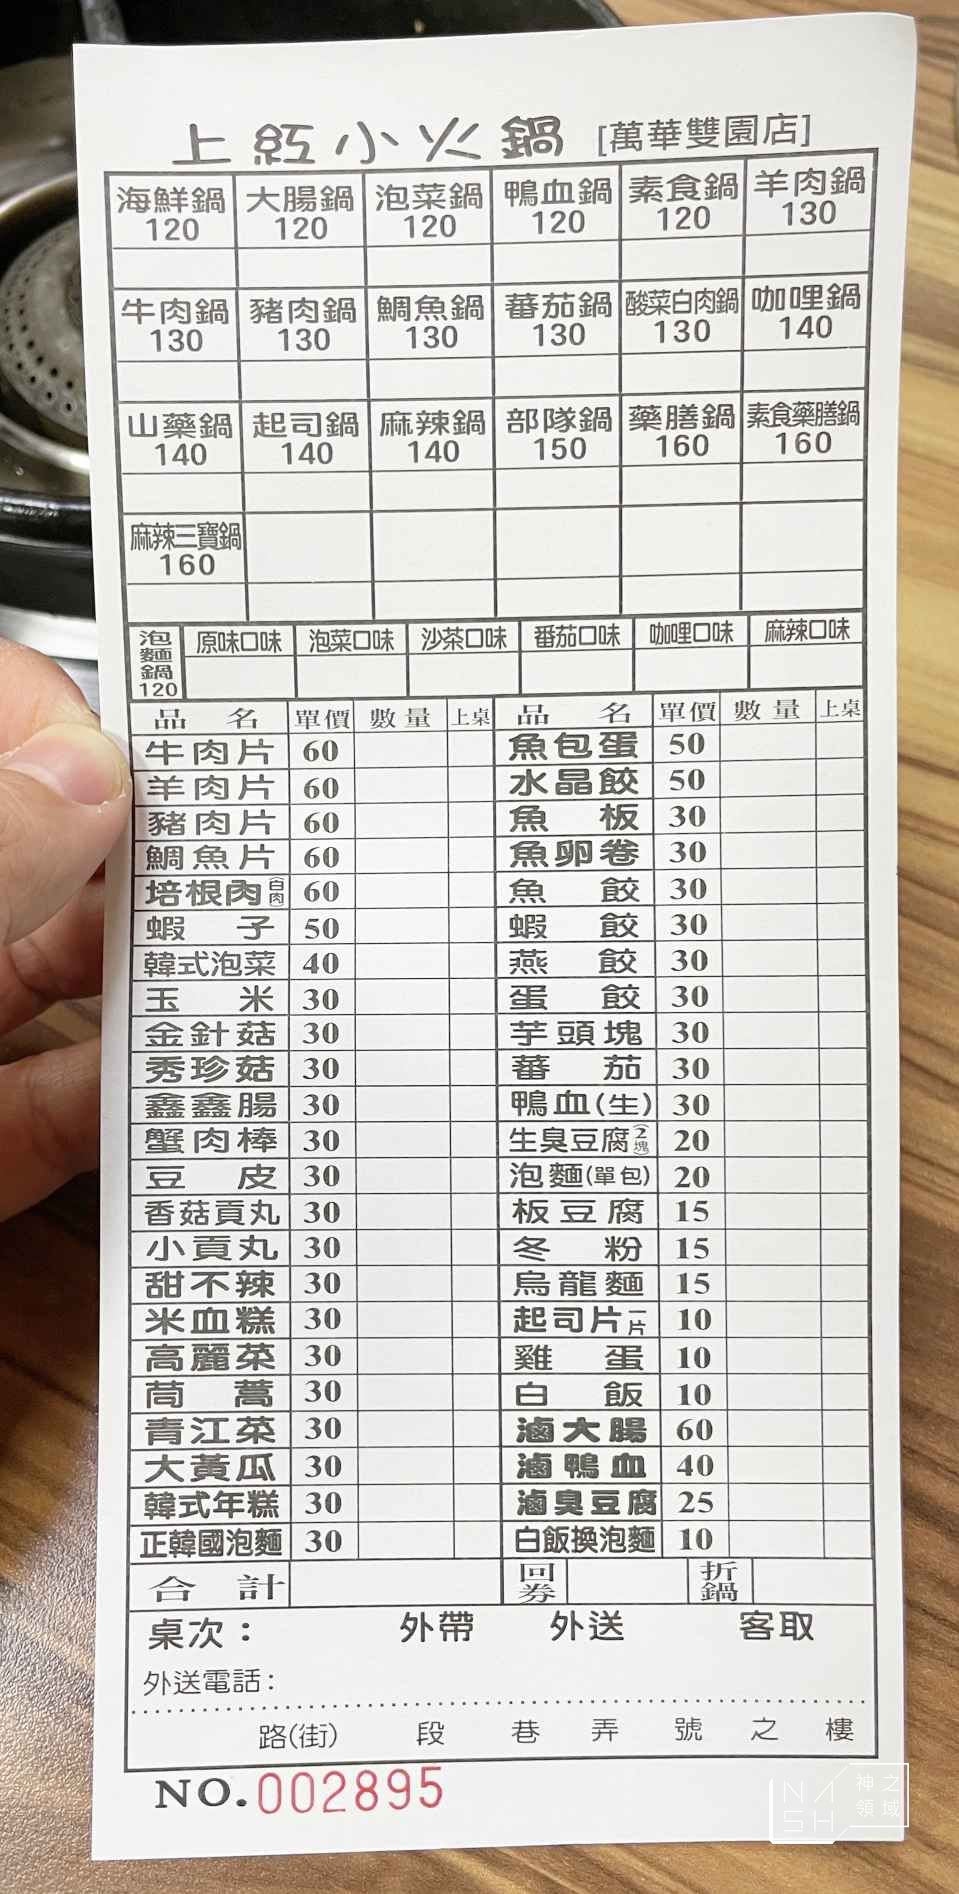 上紅小火鍋 [萬華雙園店]
海鮮鍋 大腸鍋 泡菜鍋 鴨血鍋 素食鍋 羊肉鍋
120 120 120 120 120 130
牛肉鍋 豬肉鍋 鯛魚鍋 蕃茄鍋 酸菜白肉鍋 咖哩鍋
130 130 130 130 130 140
山藥鍋 起司鍋 麻辣鍋 部隊鍋 藥膳鍋 素食藥膳鍋
140 140 140 150 160 160
麻辣三寶鍋
160
泡麵鍋 120 原味口味 泡菜口味 沙茶口味 番茄口味 咖哩口味 麻辣口味
品名 單價 數量 上桌 品名 單價 數量 上桌
牛肉片 60 魚包蛋 50
羊肉片 60 水晶餃 50
豬肉片 60 魚板 30
鯛魚片 60 魚卵卷 30
培根肉(白肉) 60 魚餃 30
蝦子 50 蝦餃 30
韓式泡菜 40 燕餃 30
玉米 30 蛋餃 30
金針菇 30 芋頭塊 30
秀珍菇 30 蕃茄 30
鑫鑫腸 30 鴨血(生) 30
蟹肉棒 30 生臭豆腐(2塊) 20
豆皮 30 泡麵(單包) 20
香菇貢丸 30 板豆腐 15
小貢丸 30 冬粉 15
甜不辣 30 烏龍麵 15
米血糕 30 起司片一片 10
高麗菜 30 雞蛋 10
茼蒿 30 白飯 10
青江菜 30 滷大腸 60
大黃瓜 30 滷鴨血 40
韓式年糕 30 滷臭豆腐 25
正韓國泡麵 30 白飯換泡麵 10
合計 回券 折鍋
桌次： 外帶 外送 客取
外送電話：
路(街) 段 巷 弄 號 之 樓
NO.002895
NASH 神之領域